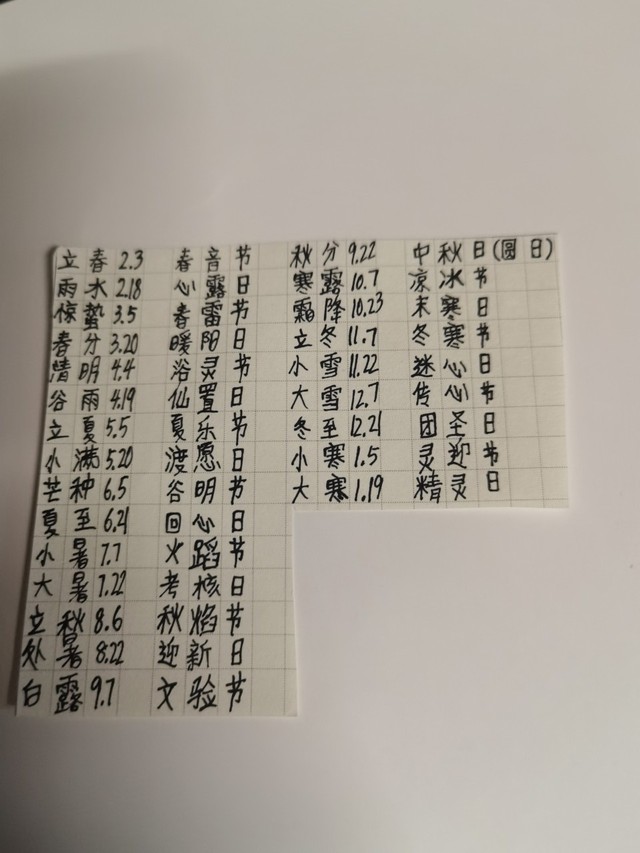 立春2.3 春音节
雨水2.18 心露日
惊蛰3.5 春雷节
春分3.20 暖阳日
清明4.4 浴灵节
谷雨4.19 仙置日
立夏5.5 夏乐节
小满5.20 渡愿日
芒种6.5 谷明节
夏至6.21 回心日
小暑7.7 火蹈节
大暑7.22 考核日
立秋8.6 秋焰节
处暑8.22 迎新日
白露9.7 文验节
秋分9.22 中秋日(圆日)
寒露10.7 凉冰节
霜降10.23 末寒日
立冬11.7 冬寒节
小雪11.22 迷心日
大雪12.7 传心节
冬至12.21 团圣日
小寒1.5 灵迎节
大寒1.19 精灵日